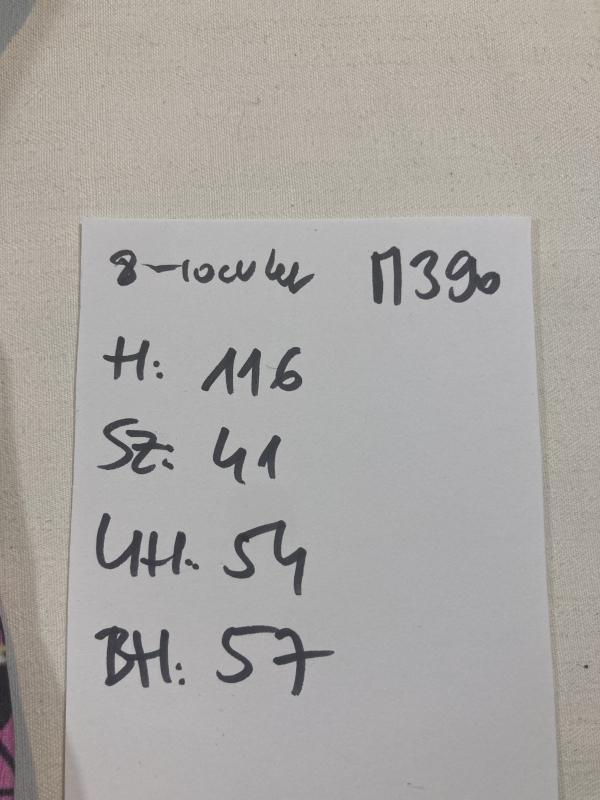 M390
H: 116
SZ: 41
UH: 54
BH: 57